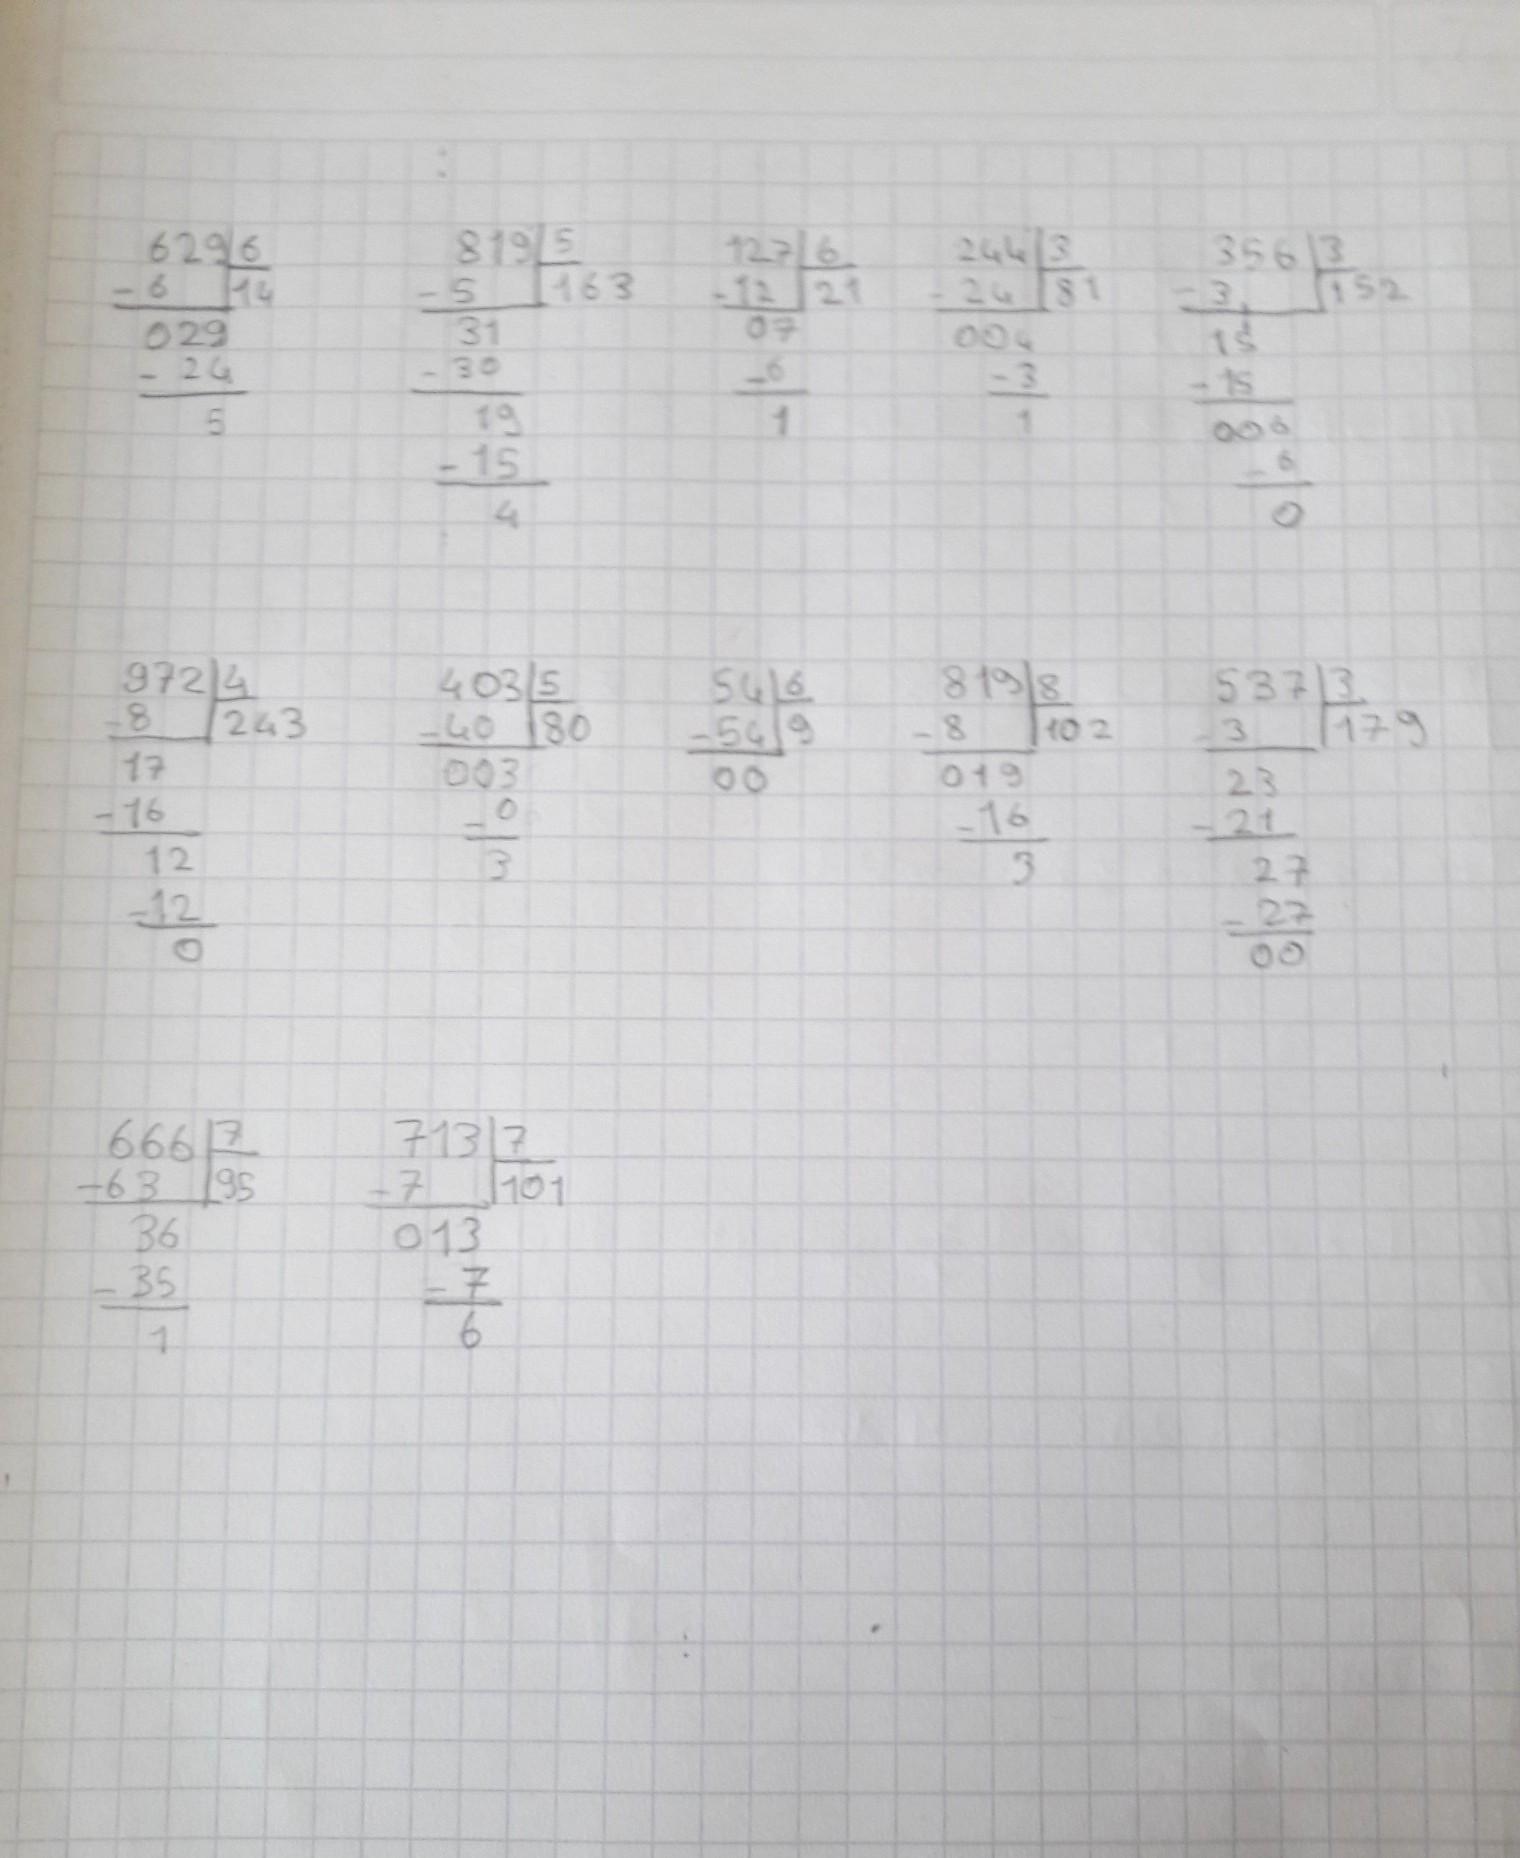 629 6 819 5 127 6 244 3 356 3
-6 14 -5 163 -12 21 -24 81 -3 152
029 31 07 004 15
-24 -30 -6 -3 -15
5 19 1 1 006
-15 -6
4 0
972 4 403 5 54 6 819 8 537 3
-8 243 -40 80 -54 9 -8 102 -3 179
17 003 00 019 23
-16 -0 -16 -21
12 3 3 27
-12 -27
0 00
666 7 713 7
-63 95 -7 101
36 013
-35 -7
1 6